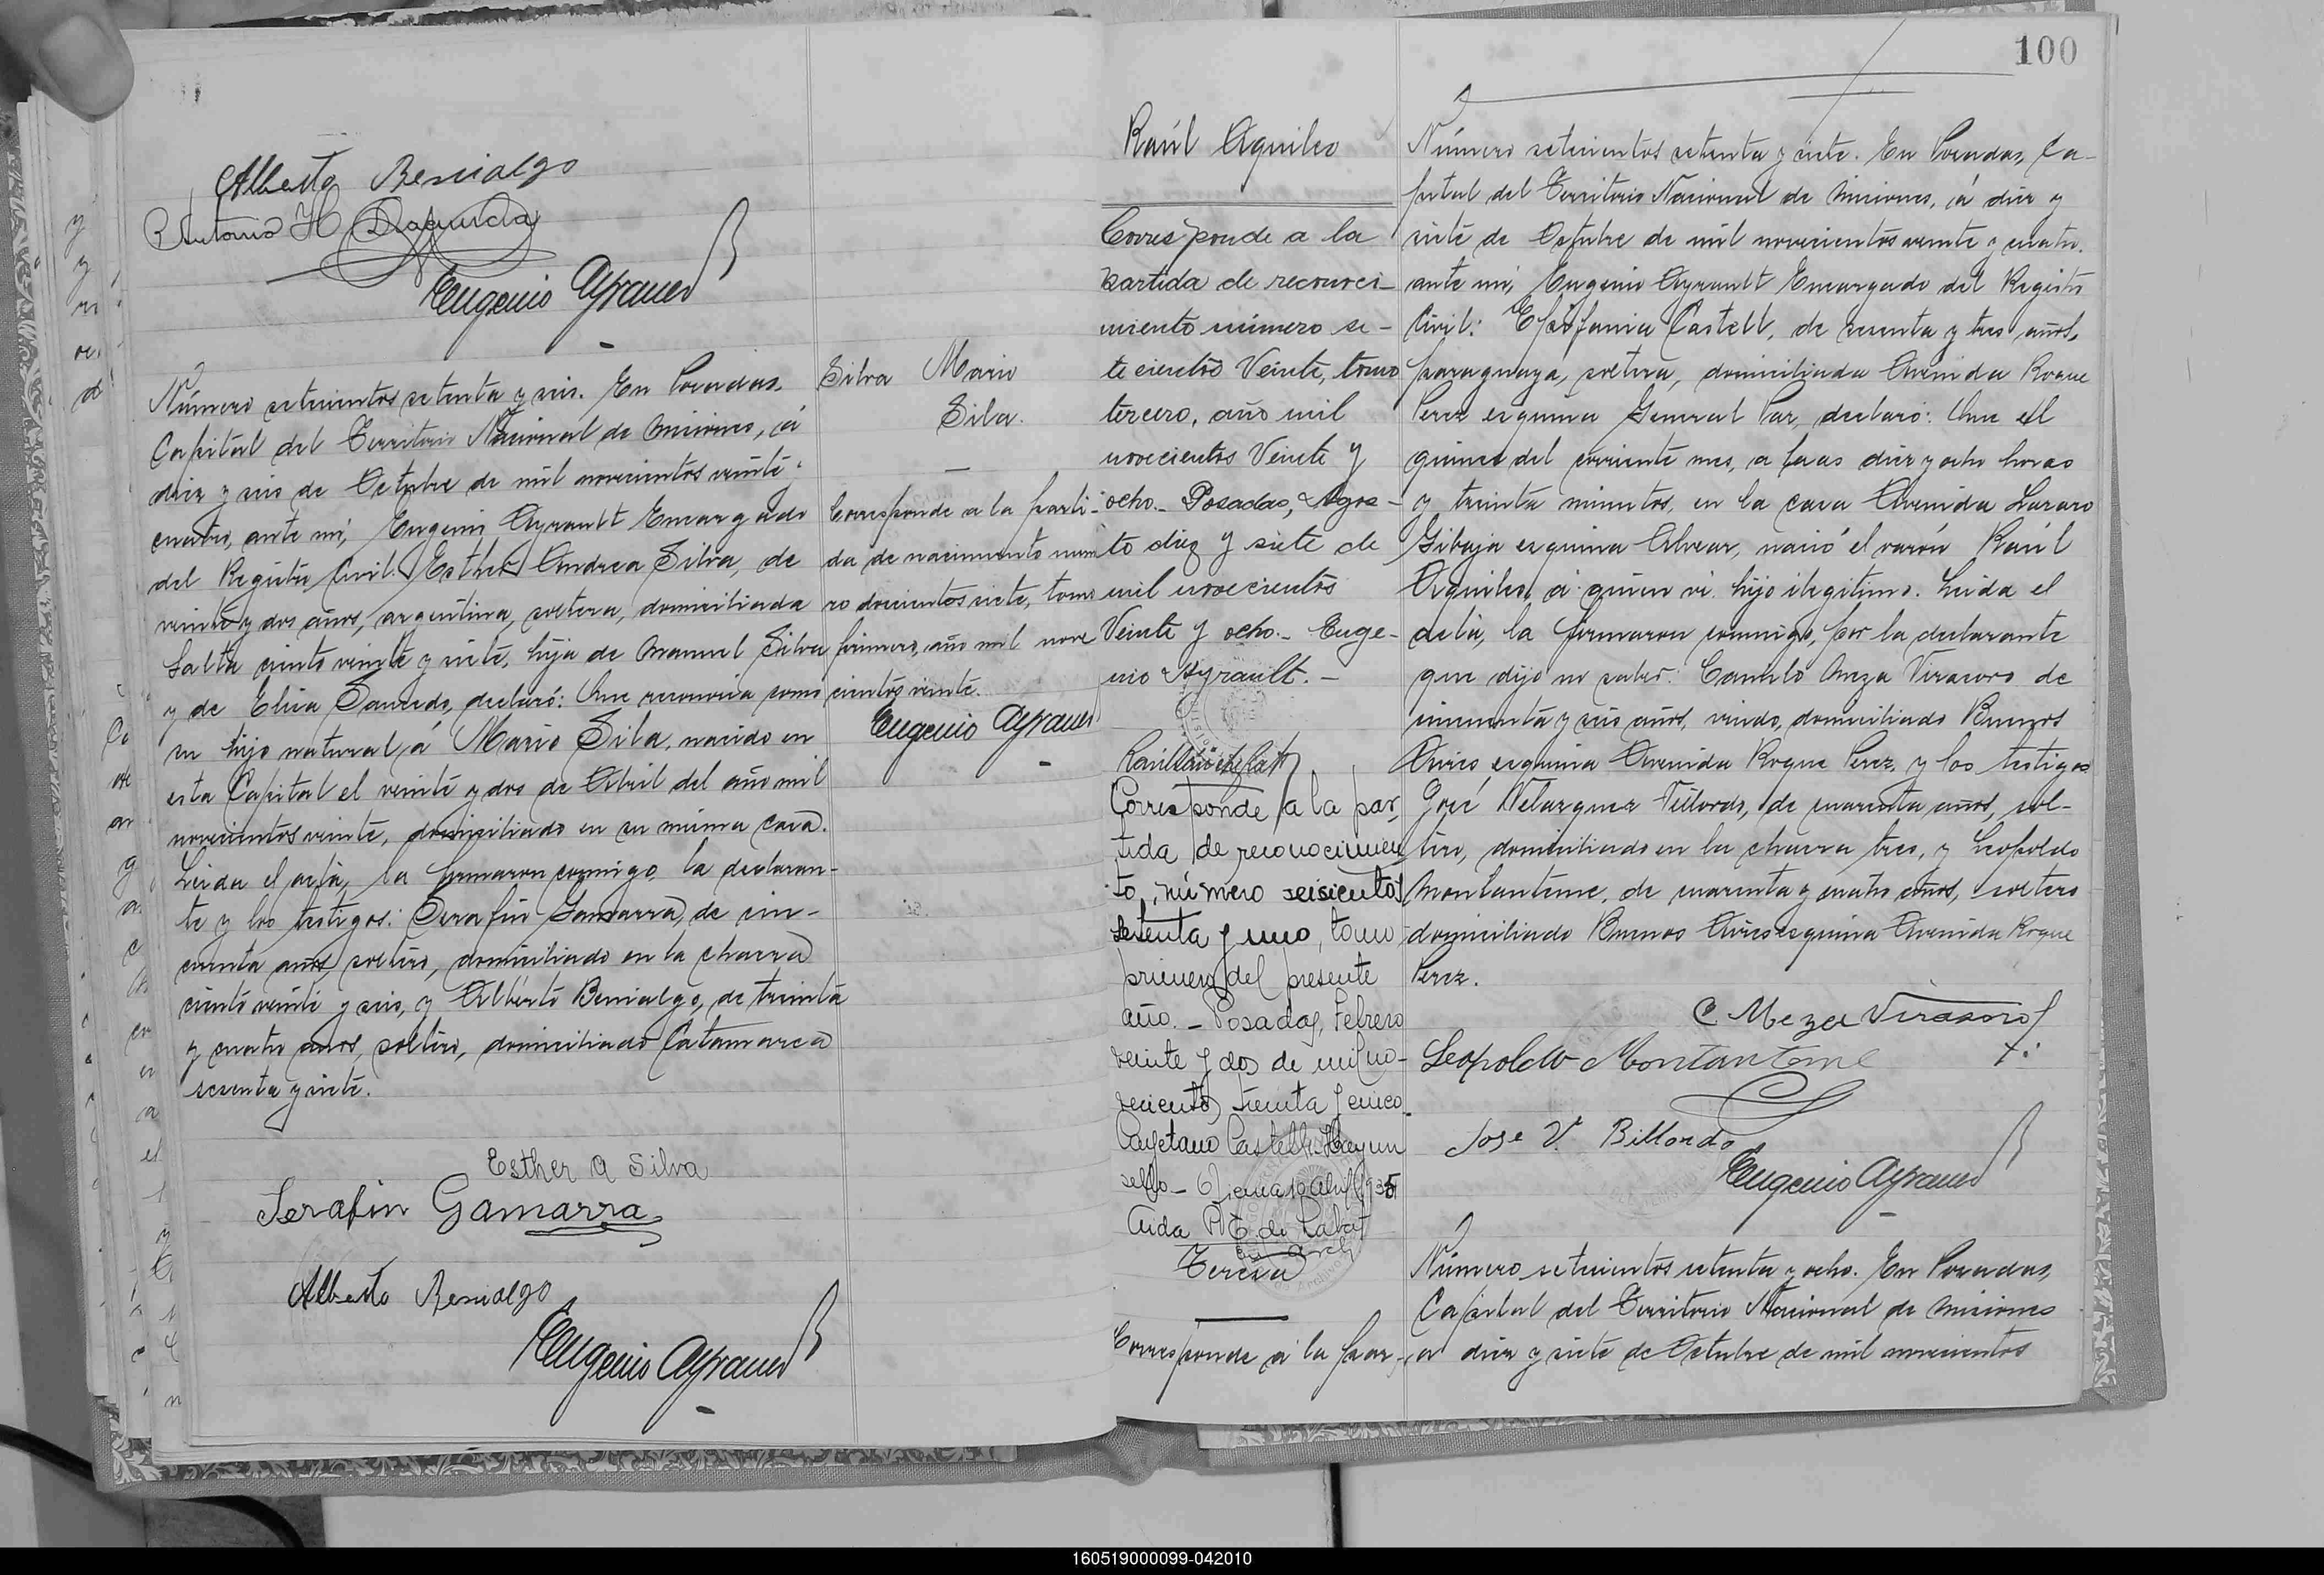 100
Alberto Benialgo
Antonio H
Eugenio Ayrault
Número setecientos setenta y seis. En Posadas,
Capital del Territorio Nacional de Misiones, á
diez y seis de Octubre de mil novecientos veinte y
cuatro, ante mi, Eugenio Ayrault Encargado
del Registro Civil: Esther Andrea Silva, de
veinte y dos años, argentina, soltera, domiciliada
Salta ciento veinte y siete, hija de Manuel Silva
y de Elisa declaró: Que reconocia como
su hijo natural á Mario Sila, nacido en
esta Capital el veinte y dos de Abril del año mil
novecientos veinte, domiciliado en su misma casa.
Leida el acta, la firmaron conmigo la declaran-
te y los testigos: Serafin Gamarra, de cin-
cuenta años, soltero, domiciliado en la chacra
ciento veinte y seis, y Alberto Benialgo, de treinta
y cuatro años, soltero, domiciliado Catamarca
sesenta y siete.
Esther A Silva
Serafin Gamarra
Alberto Benialgo
Eugenio Ayrault
Silva Mario
Sila.
Corresponde a la parti-
da de nacimiento nume
ro doscientos siete, tomo
primero, año mil nove
cientos veinte.
Eugenio Ayrault
Raúl Aquiles
Corresponde a la
partida de reconoci-
miento número se-
tecientos Veinte, tomo
tercero, año mil
novecientos Veinte y
ocho.- Posadas, Agos-
to diez y siete de
mil novecientos
Veinte y ocho.- Euge-
nio Ayrault.-
Corresponde a la par
tida de reconocimien
to, número seiscientos
setenta y uno, tomo
primero del presente
año.- Posadas, Febrero
veinte y dos de mil no-
vecientos treinta y cinco.
Cayetano Castelli. Hay un
sello-
Aida
Teresa
Corresponde á la par-
Número setecientos setenta y siete. En Posadas, Ca-
pital del Territorio Nacional de Misiones, á diez y
siete de Octubre de mil novecientos veinte y cuatro.
ante mi, Eugenio Ayrault Encargado del Registro
Civil: Epifania Castell, de sesenta y tres años,
paraguaya, soltera, domiciliada Avenida Roque
Perez esquina General Paz, declaró: Que el
quince del corriente mes, a las diez y ocho horas
y treinta minutos, en la casa Avenida Lazaro
Gibaja esquina Alvear, nació el varón Raúl
Aquiles, á quien vi. hijo ilegitimo. Leida el
acta, la firmaron conmigo, por la declarante
que dijo no saber: Camilo Meza Virasoro de
cincuenta y seis años, viudo, domiciliado Buenos
Aires esquina Avenida Roque Perez, y los testigos
José Velazquez Billordo, de cuarenta años, sol-
tero, domiciliado en la chacra tres, y Leopoldo
Montanteme, de cuarenta y cuatro años, soltero
domiciliado Buenos Aires esquina Avenida Roque
Perez.
C. Meza Virasoro
Leopoldo Montanteme
Jose V. Billordo
Eugenio Ayrault
Número setecientos setenta y ocho. En Posadas,
Capital del Territorio Nacional de Misiones
a diez y siete de Octubre de mil novecientos
160519000099-042010